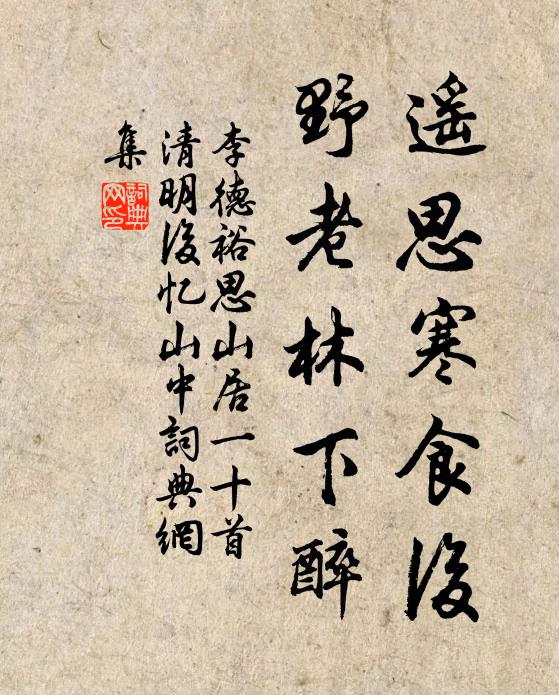 遥思寒食後
野老林下醉
李德裕思山居一十首
清明後忆山中詞典網
集
詞典
网印